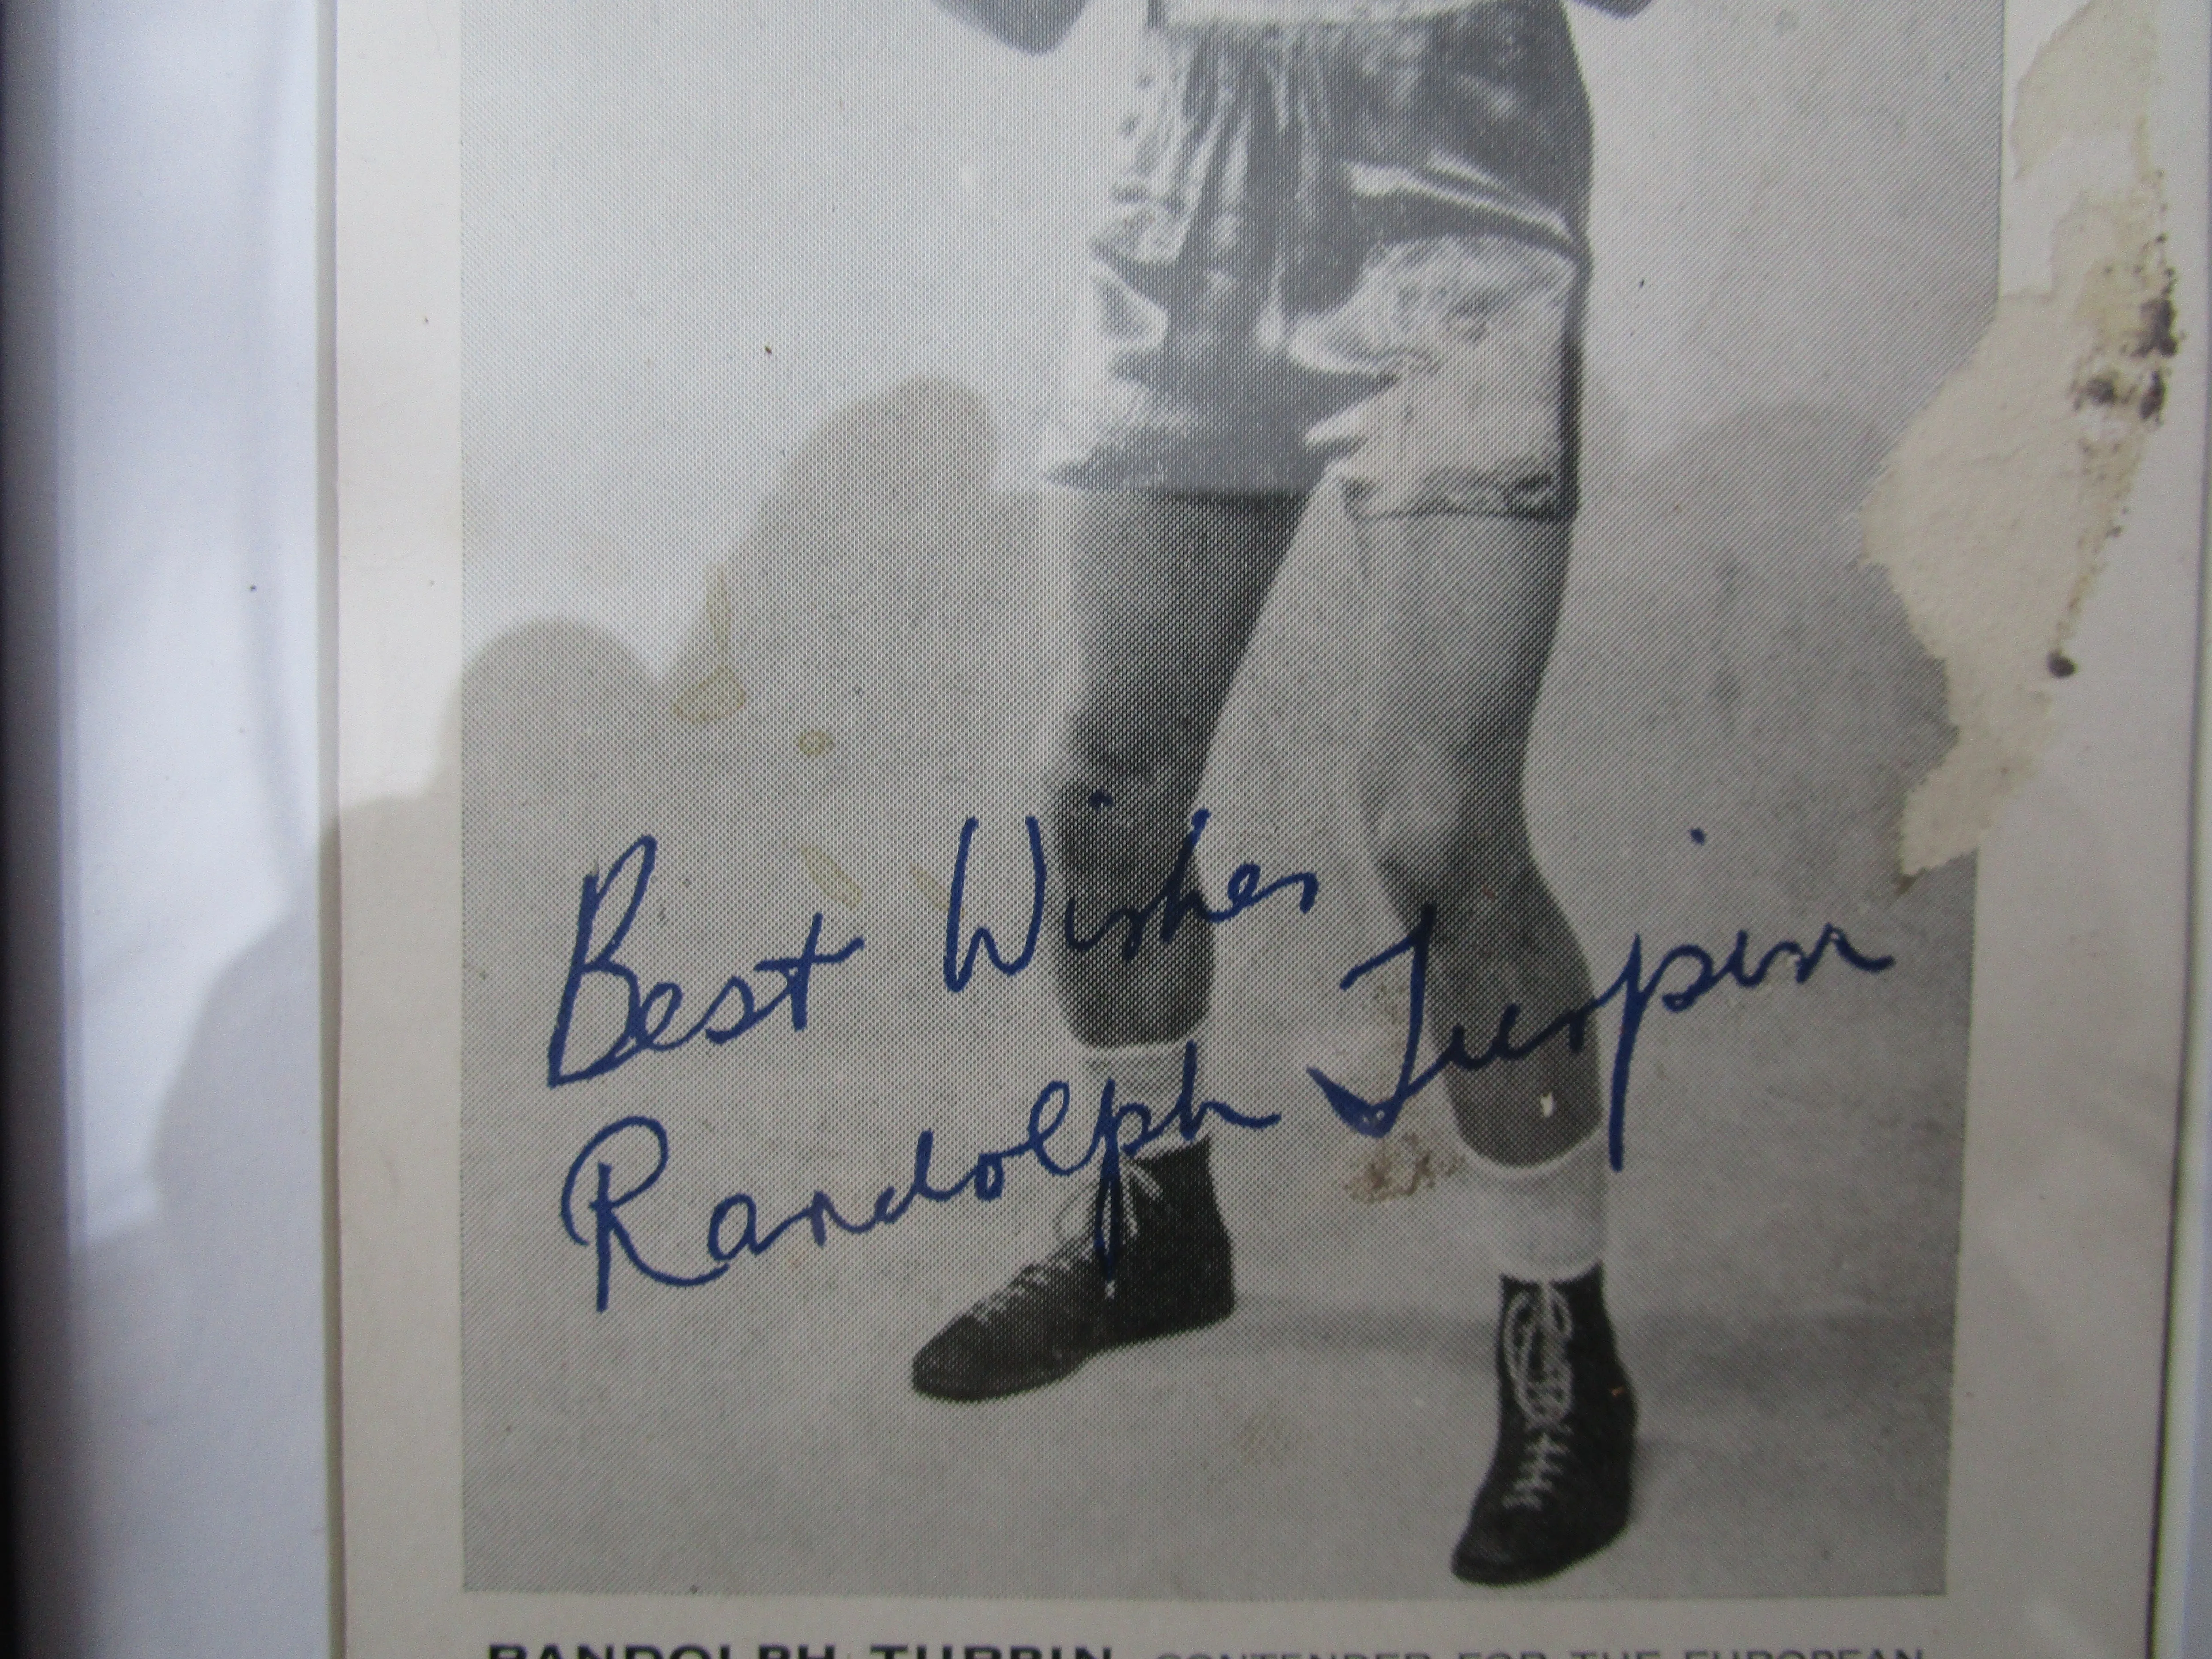 Best Wishes
Randolph Turpin
RANDOLPH TURPIN CONTENDER FOR THE EUROPEAN